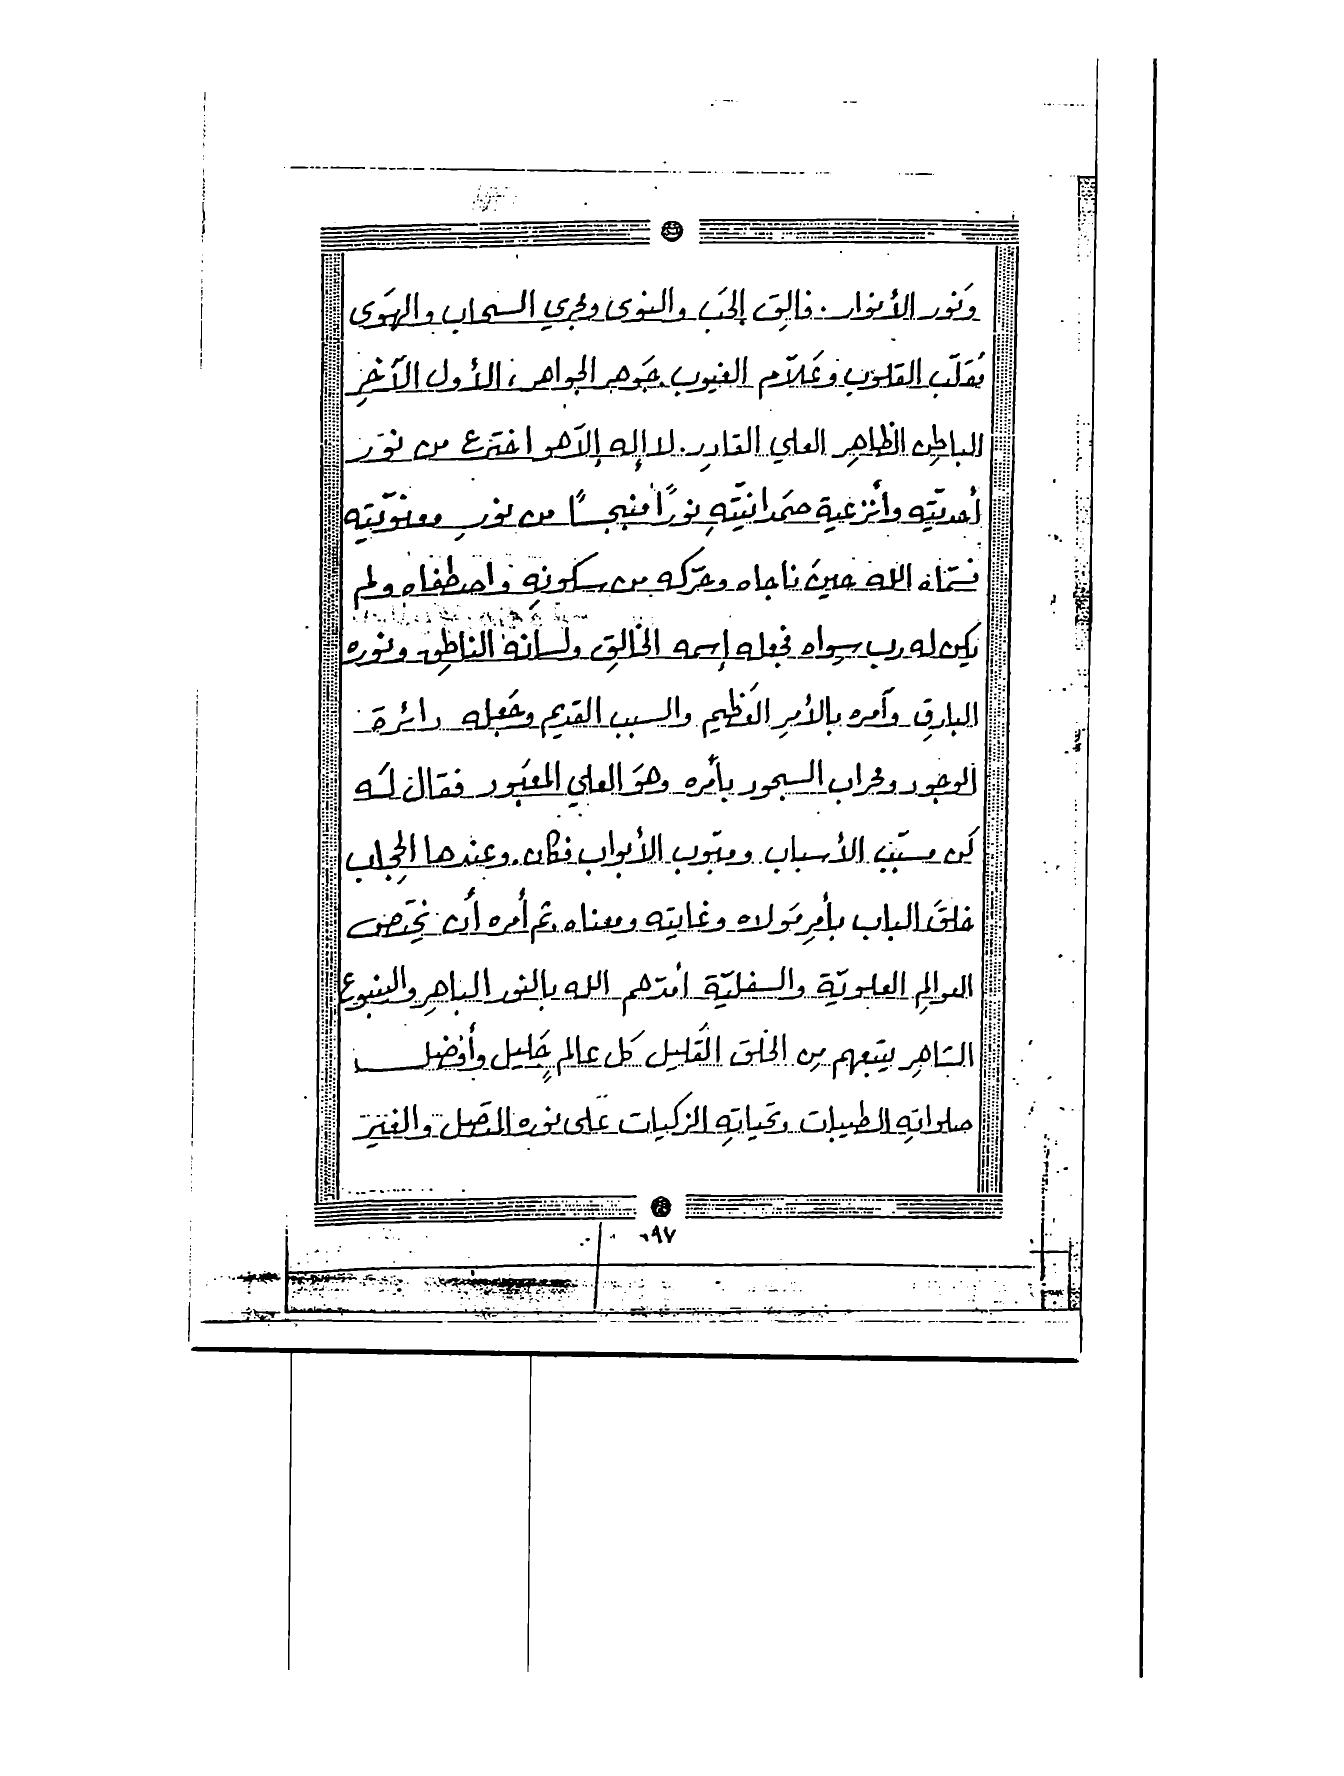 وَنور الأنوار. فالِق الحَب والنوى ومجري السحاب والهَوَى
مُقلّب القلوب وعَلاّم الغيوب. جَوهر الجواهر، الأول الآخِر
الباطِن الظاهِر العلي القادِر. لا إله إلاّ هو اخترع من نوَر
أحديّته وأنزعية صَمَدانيّتهِ نورًا منبجسًا من نورِ معنويّته
فسَمّاه الله حينَ ناجاه وحرّكه من سكونهِ واصطفاه ولم
يكن له رب سِواه فجعله إسمه الخالِق ولسانَه الناطِق ونوره
البارِق وآمره بالأمرِ العَظيم والسبب القديم وجَعله دائرة
الوجود ومحراب السجود بأمره وهوَ العلي المعبُود فقال لَه
كَن مسبّب الأسباب ومبّوب الأبواب فكان. وعندها الحِجاب
خلقَ الباب بأمرِ مَولاه وغايته ومعناه ثم أمره أن يختَص
العوالِم العلويّة والسفليّة أمدّهم الله بالنور الباهِر والينبوع
الشاهِر يتبعهم مِن الخلق القَليل كَل عالم جَليل وأفضل
صلواتهِ الطيبات وتحياتهِ الزكيات عَلى نوره المتصِل والغَير
٩٧